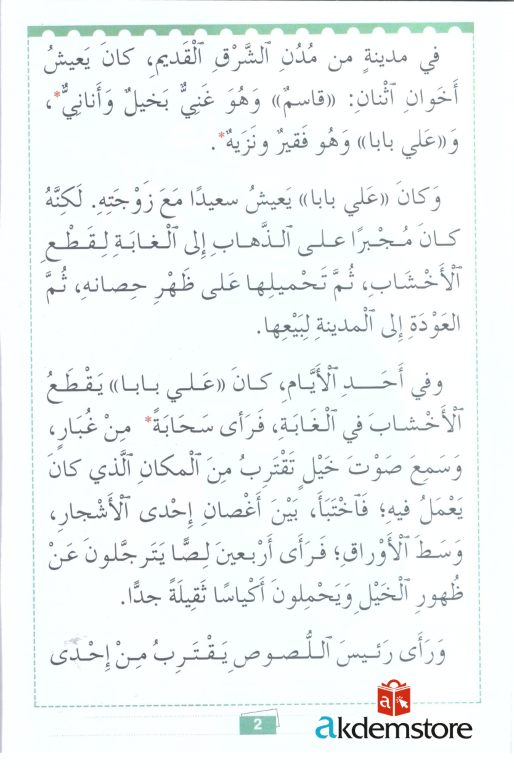 في مدينةٍ من مُدُنِ ٱلشَّرْقِ ٱلْقَديمِ، كانَ يَعيشُ
أَخَوانِ ٱثْنانِ: «قاسمٌ» وَهُوَ غَنِيٌّ بَخيلٌ وَأَنانِيٌّ*،
وَ«عَلي بابا» وَهُو فَقيرٌ ونَزَيهٌ*.
وَكانَ «عَلي بابا» يَعيشُ سعيدًا مَعَ زَوْجَتِهِ. لَكِنَّهُ
كـانَ مُـجْبرًا عـلـى ٱلـذَّهـاب إِلى ٱلْـغـابَـةِ لِـقَـطْـعِ
ٱلْأَخْـشـابِ، ثُـمَّ تَحْمـيلِـهـا عَـلى ظَـهْـرِ حِـصـانـهِ، ثُـمَّ
العَوْدَةِ إِلى ٱلْمدينةِ لِبَيْعِها.
وفي أَحَـــدِ ٱلْأَيَّـامِ، كـانَ «عَـلـي بـابـا» يَـقْـطَـعُ
ٱلْأَخْـشـابَ في ٱلْـغـابَةِ، فَـرَأى سَـحَابَةً* مِـنْ غُـبَـارٍ،
وَسَمِعَ صَوْتَ خَيْلٍ تَقْتَرِبُ مِنَ ٱلْمكانِ ٱلَّذي كانَ
يَعْمَلُ فيهِ؛ فَٱخْتَبَأَ، بَيْنَ أَغْصانِ إِحْدى ٱلْأَشْجارِ،
وَسَطَ ٱلْأَوْراقِ؛ فَـرَأى أَرْبـعـينَ لِـصًّا يَتَرجَّلونَ عَـنْ
ظُهورِ ٱلْخَيْلِ وَيَحْمِلونَ أَكْياسًا ثَقيلَةً جدًّا.
وَرَأَى رَئـيـسَ ٱلـلُّـصـوصِ يَـقْـتَـرِبُ مِـنْ إِحْـدى
2
a
akdemstore